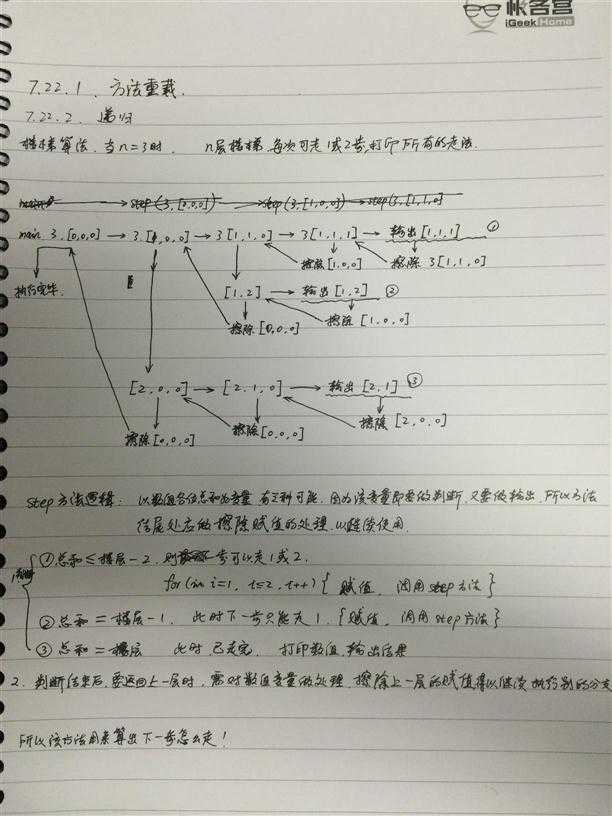 极客营
iGeek Home
7.22.1、方法重载.
7.22.2、递归
楼梯算法. 当n=3时. n层楼梯,每次可走1或2步,打印所有的走法.
step(3,[0,0,0]) → step(3,[1,0,0]) → step(3,[1,1,0]
main 3.[0,0,0] → 3.[1,0,0] → 3[1,1,0] → 3[1,1,1] → 输出[1,1,1] ①
擦除[1,0,0] 擦除 3[1,1,0]
执行完毕. [1,2] → 输出[1,2] ②
擦除[0,0,0] 擦除[1,0,0]
[2,0,0] → [2,1,0] → 输出[2,1] ③
擦除[0,0,0] 擦除[0,0,0] 擦除[2,0,0]
step方法逻辑: 以数组各位总和为变量,有三种可能. 因为该变量即要做判断,又要做输出,所以方法
结尾处应做擦除赋值的处理,以继续使用.
1.判断 ①总和≤楼层-2, 则 步可以走1或2.
for(int i=1, i≤2, i++){ 赋值, 调用step方法}
②总和=楼层-1, 此时下一步只能走1.{赋值, 调用step方法}
③总和=楼层 此时已走完, 打印数组,输出结果
2、判断结束后,要返回上一层时,需对数组变量做处理,擦除上一层的赋值得以继续执行别的分支
所以该方法用来算出下一步怎么走!